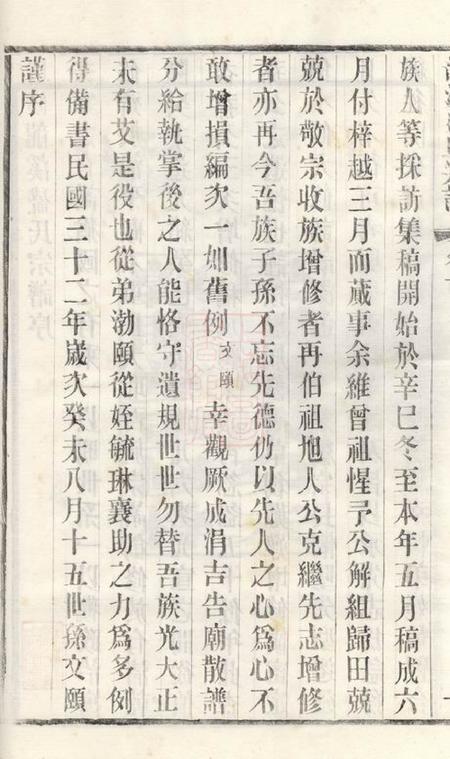 族人等採訪集稿開始於辛巳冬至本年五月稿成六
月付梓越三月而蕆事余維曾祖惺予公解組歸田兢
兢於敬宗收族增修者再伯祖旭人公克繼先志增修
者亦再今吾族子孫不忘先德仍以先人之心爲心不
敢增損編次一如舊例文頤幸觀厥成涓吉告廟散譜
分給執掌後之人能恪守遺規世世勿替吾族光大正
未有艾是役也從弟渤頤從姪毓琳襄助之力爲多例
得備書民國三十二年歲次癸未八月十五世孫文頤
謹序